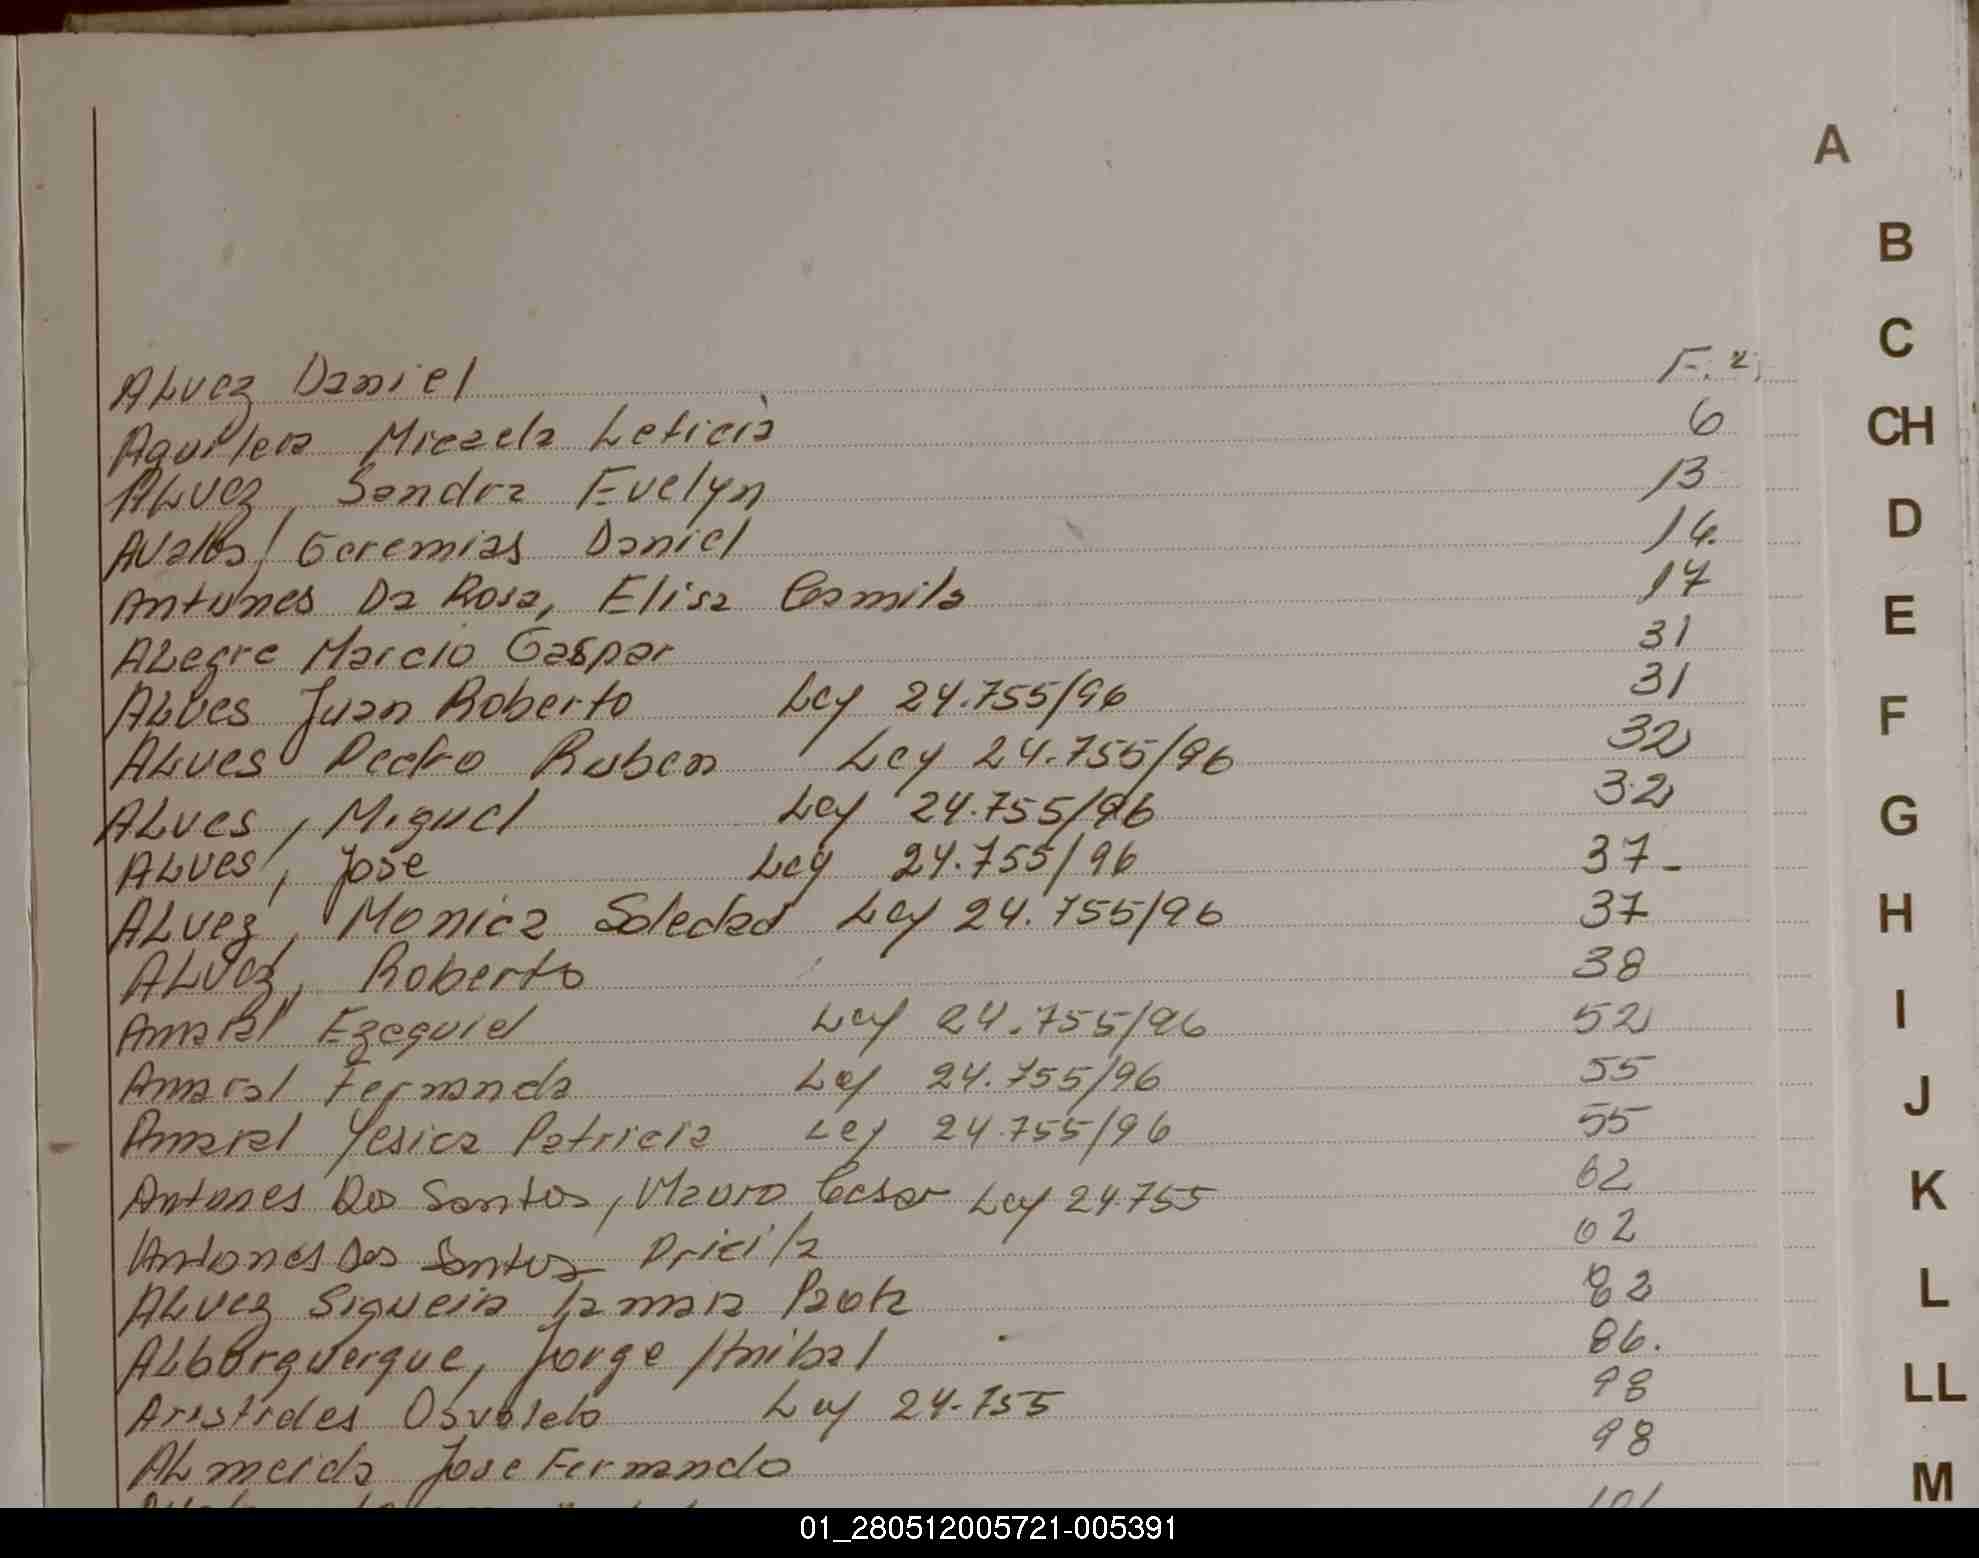 A
B
C
CH
D
E
F
G
H
I
J
K
L
LL
M
ALvez Daniel F. 2.
Aguilera Micaela Leticia 6
ALvez, Sandra Evelyn 13
Avalos, Geremias Daniel 16.
Antunes Da Rosa, Elisa Camila 17
ALegre Marcio Gaspar 31
ALves Juan Roberto Ley 24.755/96 31
ALves Pedro Ruben Ley 24.755/96 32
ALves, Miguel Ley 24.755/96 32
ALves, Jose Ley 24.755/96 37-
ALvez, Monica Soledad Ley 24.755/96 37
ALvez, Roberto 38
Amaral Ezequiel Ley 24.755/96 52
Amaral Fernanda Ley 24.755/96 55
Amaral Yesica Patricia Ley 24.755/96 55
Antunes Dos Santos, Mauro Cesar Ley 24.755 62
Antones Dos Santos Pricila 62
ALvez Siqueira Tamara Paola 82
ALburquerque, Jorge Anibal 86.
Aristides Osvaldo Ley 24.755 98
ALmeida Jose Fernando 98
101
01_280512005721-005391